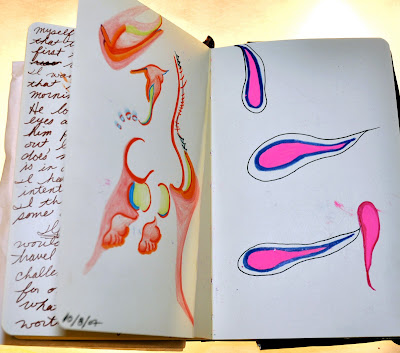 myself
that t
first
I wa
that
mornin
He lo
eyes a
him p
out l
does
is in
I ha
intent
I th
some
I
woul
travel
challe
for o
wha
wort
10/8/07